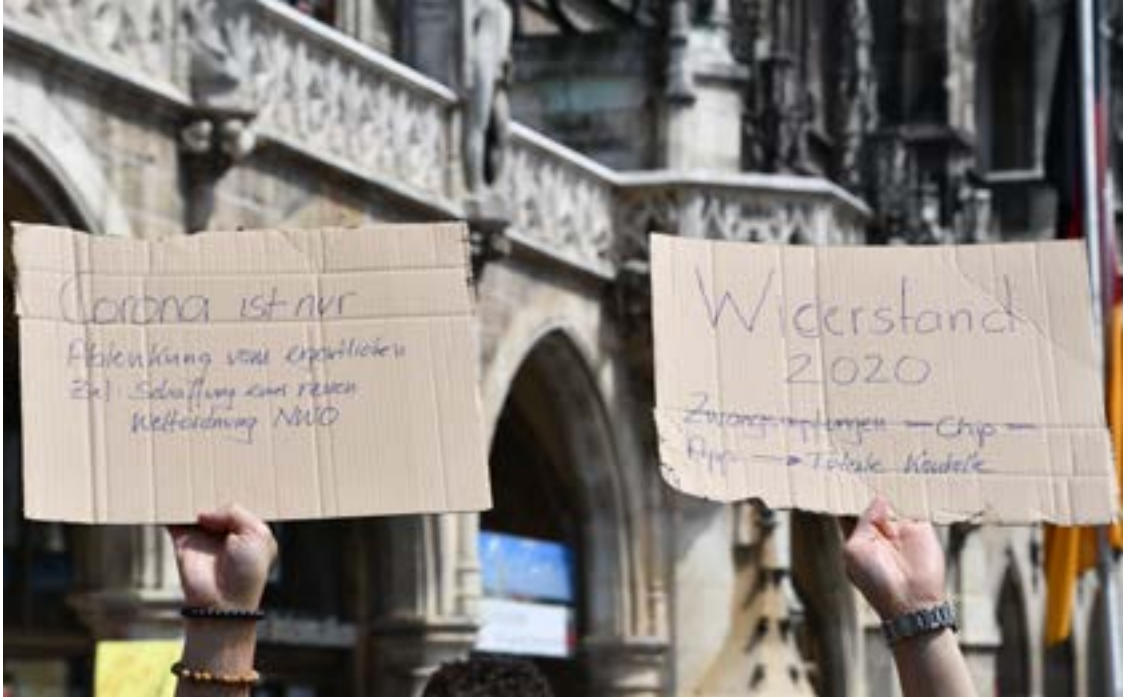 Corona ist nur
Ablenkung vom eigentlichen
Ziel: Schaffung einer neuen
Weltordnung NWO
Widerstand
2020
Zwangsimpfungen – Chip –
App → Totale Kontrolle